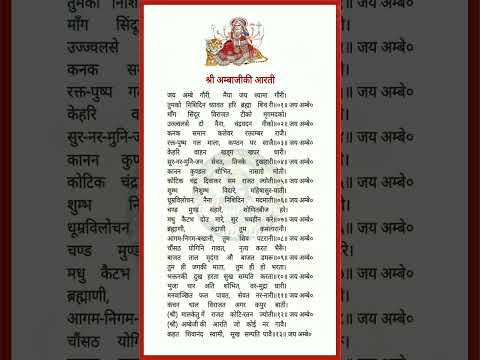 श्री अम्बाजीकी आरती
जय अम्बे गौरी, मैया जय श्यामा गौरी।
तुमको निशिदिन ध्यावत हरि ब्रह्मा शिव री॥१॥ जय अम्बे०
माँग सिंदूर विराजत टीको मृगमदको।
उज्ज्वलसे दो नैना, चंद्रवदन नीको॥२॥ जय अम्बे०
कनक समान कलेवर रक्ताम्बर राजै।
रक्त-पुष्प गल माला, कण्ठन पर साजै॥३॥ जय अम्बे०
केहरि वाहन राजत, खड्ग खपर धारी।
सुर-नर-मुनि-जन सेवत, तिनके दुखहारी॥४॥ जय अम्बे०
कानन कुण्डल शोभित, नासाग्रे मोती।
कोटिक चंद्र दिवाकर सम राजत ज्योती॥५॥ जय अम्बे०
शुम्भ निशुम्भ विदारे, महिषासुर-घाती।
धूम्रविलोचन नैना निशिदिन मदमाती॥६॥ जय अम्बे०
चण्ड मुण्ड संहारे, शोणितबीज हरे।
मधु कैटभ दोउ मारे, सुर भयहीन करे॥७॥ जय अम्बे०
ब्रह्माणी, रुद्राणी तुम कमलारानी।
आगम-निगम-बखानी, तुम शिव पटरानी॥८॥ जय अम्बे०
चौंसठ योगिनि गावत, नृत्य करत भैरूँ।
बाजत ताल मृदंगा औ बाजत डमरू॥९॥ जय अम्बे०
तुम ही जगकी माता, तुम ही हो भरता।
भक्तनकी दुख हरता सुख सम्पति करता॥१०॥ जय अम्बे०
भुजा चार अति शोभित, वर-मुद्रा धारी।
मनवाञ्छित फल पावत, सेवत नर-नारी॥११॥ जय अम्बे०
कंचन थाल विराजत अगर कपुर बाती।
(श्री) मालकेतु में राजत कोटि-रतन ज्योती॥१२॥ जय अम्बे०
(श्री) अम्बेजी की आरति जो कोई नर गावै।
कहत शिवानंद स्वामी, सुख सम्पति पावै॥१३॥ जय अम्बे०
तुमको निशिदिन
माँग सिंदूर
उज्ज्वलसे
कनक समान
रक्त-पुष्प गल
केहरि
सुर-नर-मुनि-जन
कानन
कोटिक चंद्र
शुम्भ
धूम्रविलोचन
चण्ड मुण्ड
मधु कैटभ
ब्रह्माणी,
आगम-निगम
चौंसठ